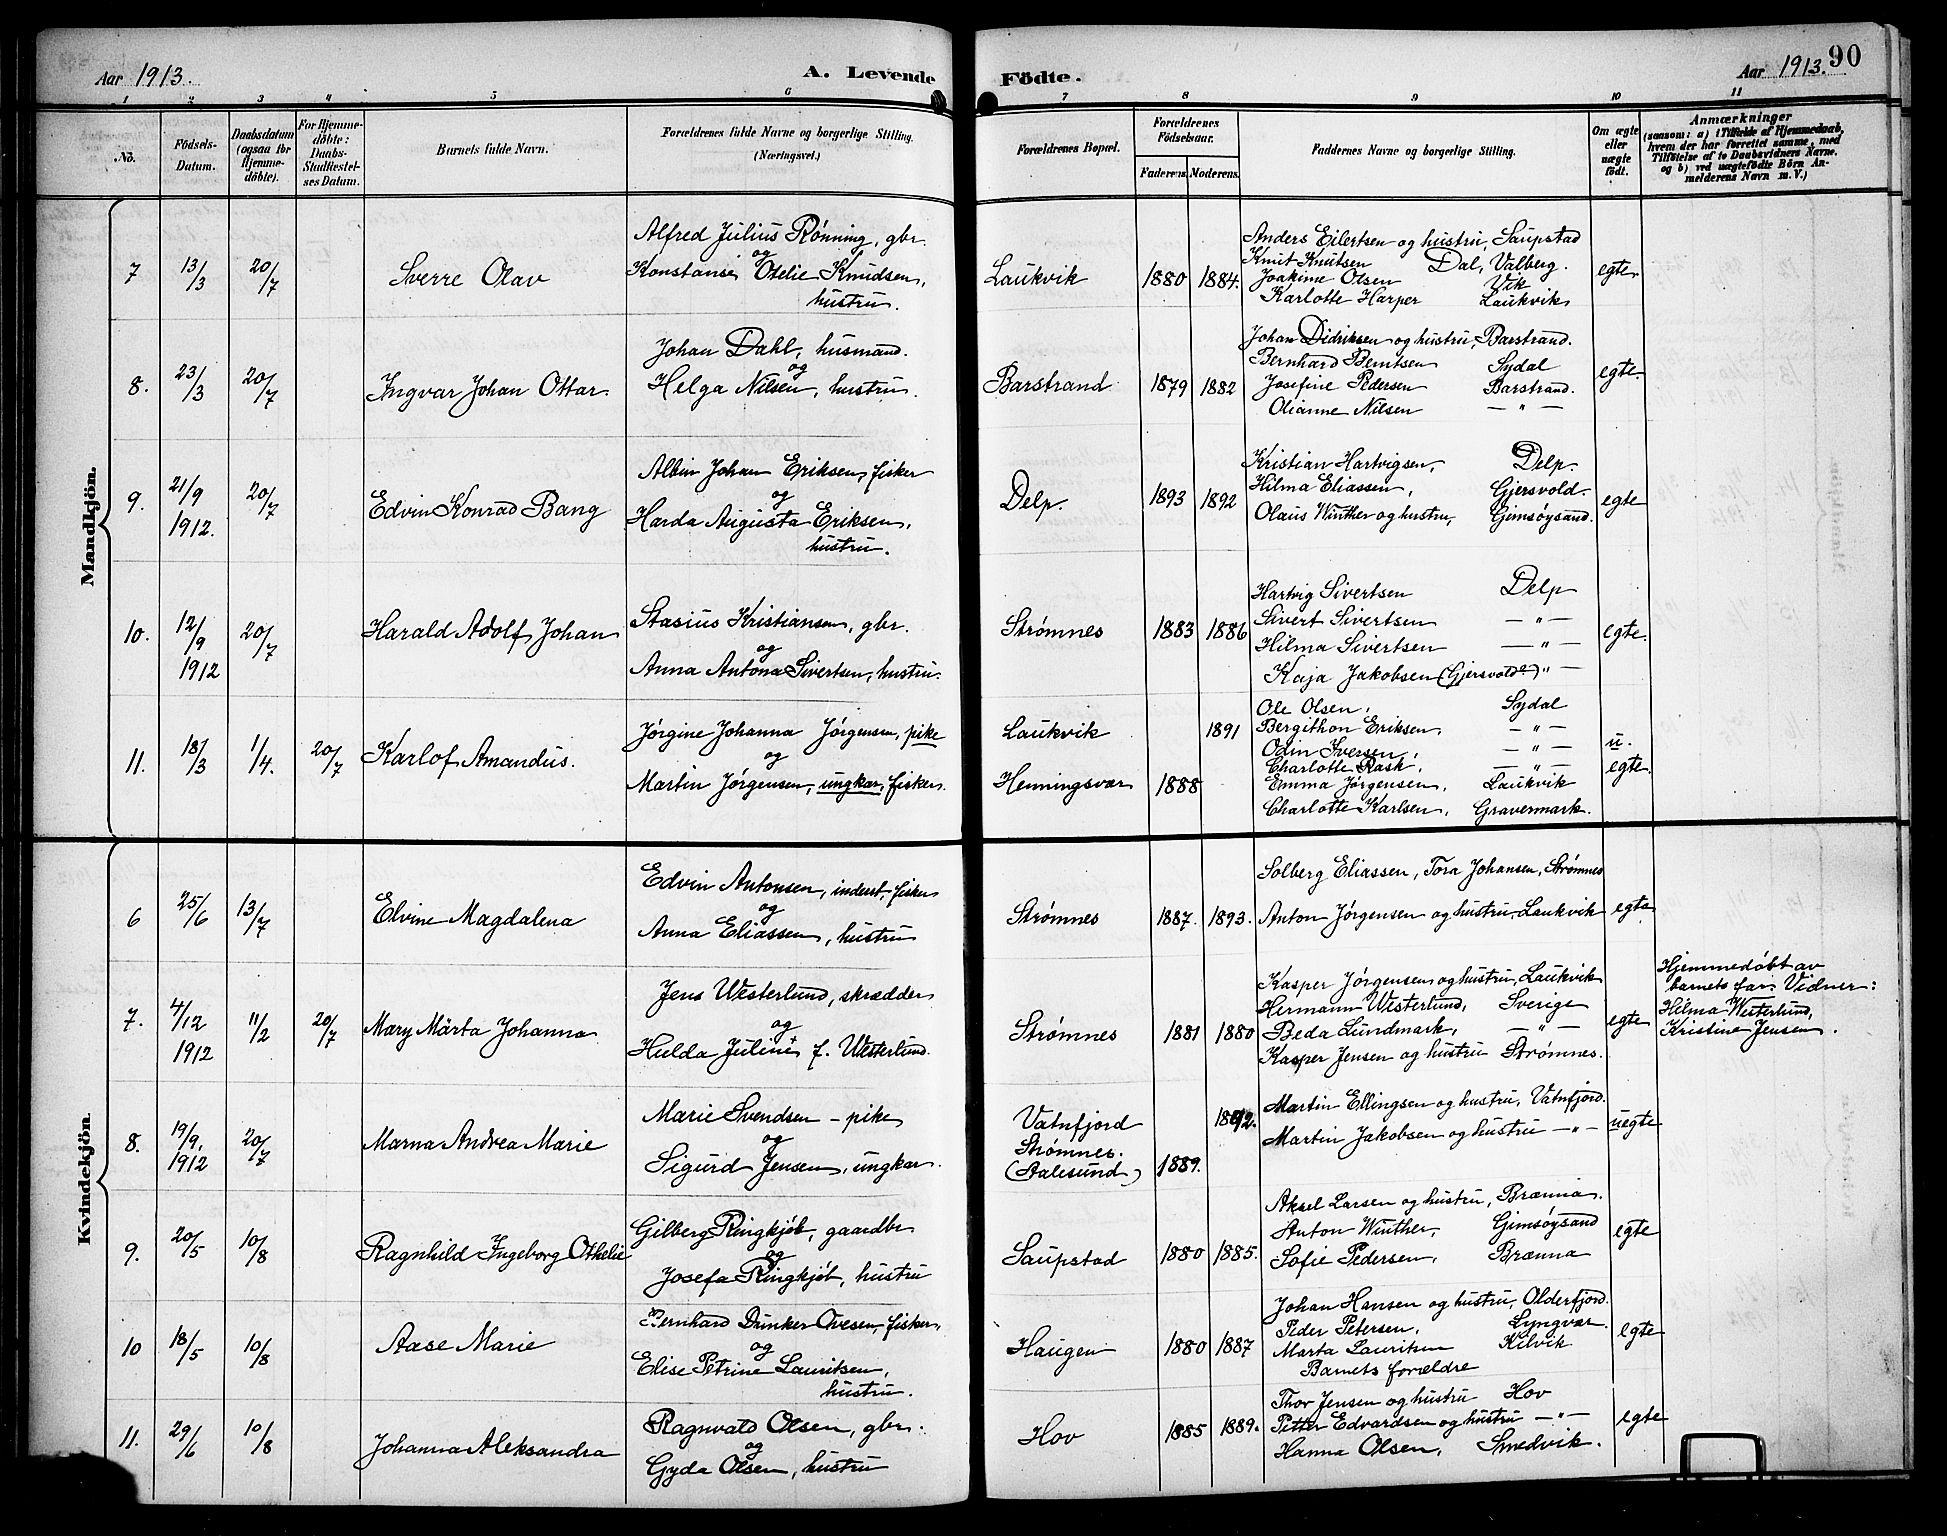 Aar 1913.
A. Levende Födte.
Aar 1913. 90
1 2 3 4 5 6 7 8 9 10 11
No. Födsels-Datum. Daabsdatum (ogsaa for Hjemmedöbte). For Hjemmedöbte: Daabs-Stadfæstelses Datum. Barnets fulde Navn. Forældrenes fulde Navne og borgerlige Stilling. (Næringsvei.) Forældrenes Bopæl. Forældrenes Födselsaar. Faderens. Moderens. Faddernes Navne og borgerlige Stilling. Om ægte eller uægte födt. Anmærkninger (saasom: a) i Tilfælde af Hjemmedaab, hvem der har forrettet samme, med Tilföielse af to Daabsvidners Navne, og b) ved uægtefödte Börn Anmelderens Navn m. V.)
Mandkjön.
7 13/3 20/7 Sverre Olav
Alfred Julius Rónning, gbr.
og
Konstanse Otelie Knudsen,
hustru.
Laukvik 1880 1884.
Anders Eilertsen og hustru, Saupstad
Knut Knutsen Dal, Valberg.
Joakime Olsen Vik
Karlotte Harper Laukvik
egte
8. 23/3 20/7 Ingvar Johan Ottar.
Johan Dahl, husmand.
og
Helga Nilsen, hustru.
Barstrand 1879 1882
Johan Didriksen og hustru, Barstrand.
Bernhard Berntsen Sydal
Josefine Pedersen Barstrand.
Olianne Nilsen — " —
egte.
9. 21/9 1912. 20/7 Edvin Konrad Bang
Albin Johan Eriksen, fisker
og
Harda Augusta Eriksen,
hustru.
Delp. 1893 1892
Kristian Hartvigsen, Delp.
Hilma Eliassen, Gjersvold.
Olaus Winther og hustru, Gimsøysand.
egte
10. 12/9 1912 20/7 Harald Adolf Johan
Stasius Kristiansen, gbr.
og
Anna Antona Sivertsen, hustru.
Strømnes 1883 1886
Hartvig Sivertsen Delp
Sivert Sivertsen — " —
Hilma Sivertsen — " —
Kaja Jakobsen (Gjersvold?) " —
egte.
11. 18/3 1/4. 20/7 Karlof Amandus.
Jórgine Johanna Jórgensen, pike
og
Martin Jórgensen, ungkar, fisker.
Laukvik 1891
Henningsvær 1888
Ole Olsen, Sydal
Bergithon Eriksen, — " —
Odin Iversen, — " —
Charlotte Rask, — " —
Emma Jórgensen, Laukvik
Charlotte Karlsen, Gravermark.
u.
egte.
Kvindekjön.
6 25/6 13/7 Elvine Magdalena
Edvin Antonsen, inderst, fisker
og
Anna Eliassen, hustru
Strømnes 1887. 1893.
Solberg Eliassen, Tora Johansen, Strømnes
Anton Jórgensen og hustru, Laukvik
egte
7. 4/12 1912 11/2 20/7 Mary Märta Johanna
Jens Westerlund, skrædder
og
Hulda Juline f. Westerlund.
Strømnes 1881 1880
Kasper Jórgensen og hustru, Laukvik
Hermann Westerlund, Sverige
Beda Lundmark, — " —
Kasper Jensen og hustru Strømnes.
egte
Hjemmedöbt av
barnets far. Vidner:
Hilma Westerlund,
Kristine Jensen.
8. 19/9. 1912 20/7 Marna Andrea Marie
Marie Svendsen – pike
og
Sigurd Jensen, ungkar.
Vatnfjord
Strømnes.
(Aalesund) 1889.
Martin Ellingsen og hustru, Vatnfjord.
Martin Jakobsen og hustru — " —
uegte
9. 20/5 10/8 Ragnhild Ingeborg Othelie
Gilberg Ringkjøb, gaardbr
og
Josefa Ringkjøb, hustru
Saupstad 1880 1885.
Aksel Larsen og hustru, Brænna.
Anton Winther, Gimsøysand
Sofie Pedersen, Brænna
egte
10 18/5 10/8 Aase Marie
Bernhard Dunker Ovesen, fisker,
og
Elise Petrine Lauritsen,
hustru.
Haugen 1880 1887
Johan Hansen og hustru, Olderfjord.
Peder Petersen, Lyngvær.
Marta Lauritsen Kilvik
Barnets forældre
egte
11. 29/6 10/8 Johanna Aleksandra
Ragnvald Olsen, gbr.
og
Gyda Olsen, hustru
Hov 1885 1889.
Thor Jensen og hustru Hov
Petter Edvardsen og hustru — " —
Hanna Olsen, Smedvik.
egte